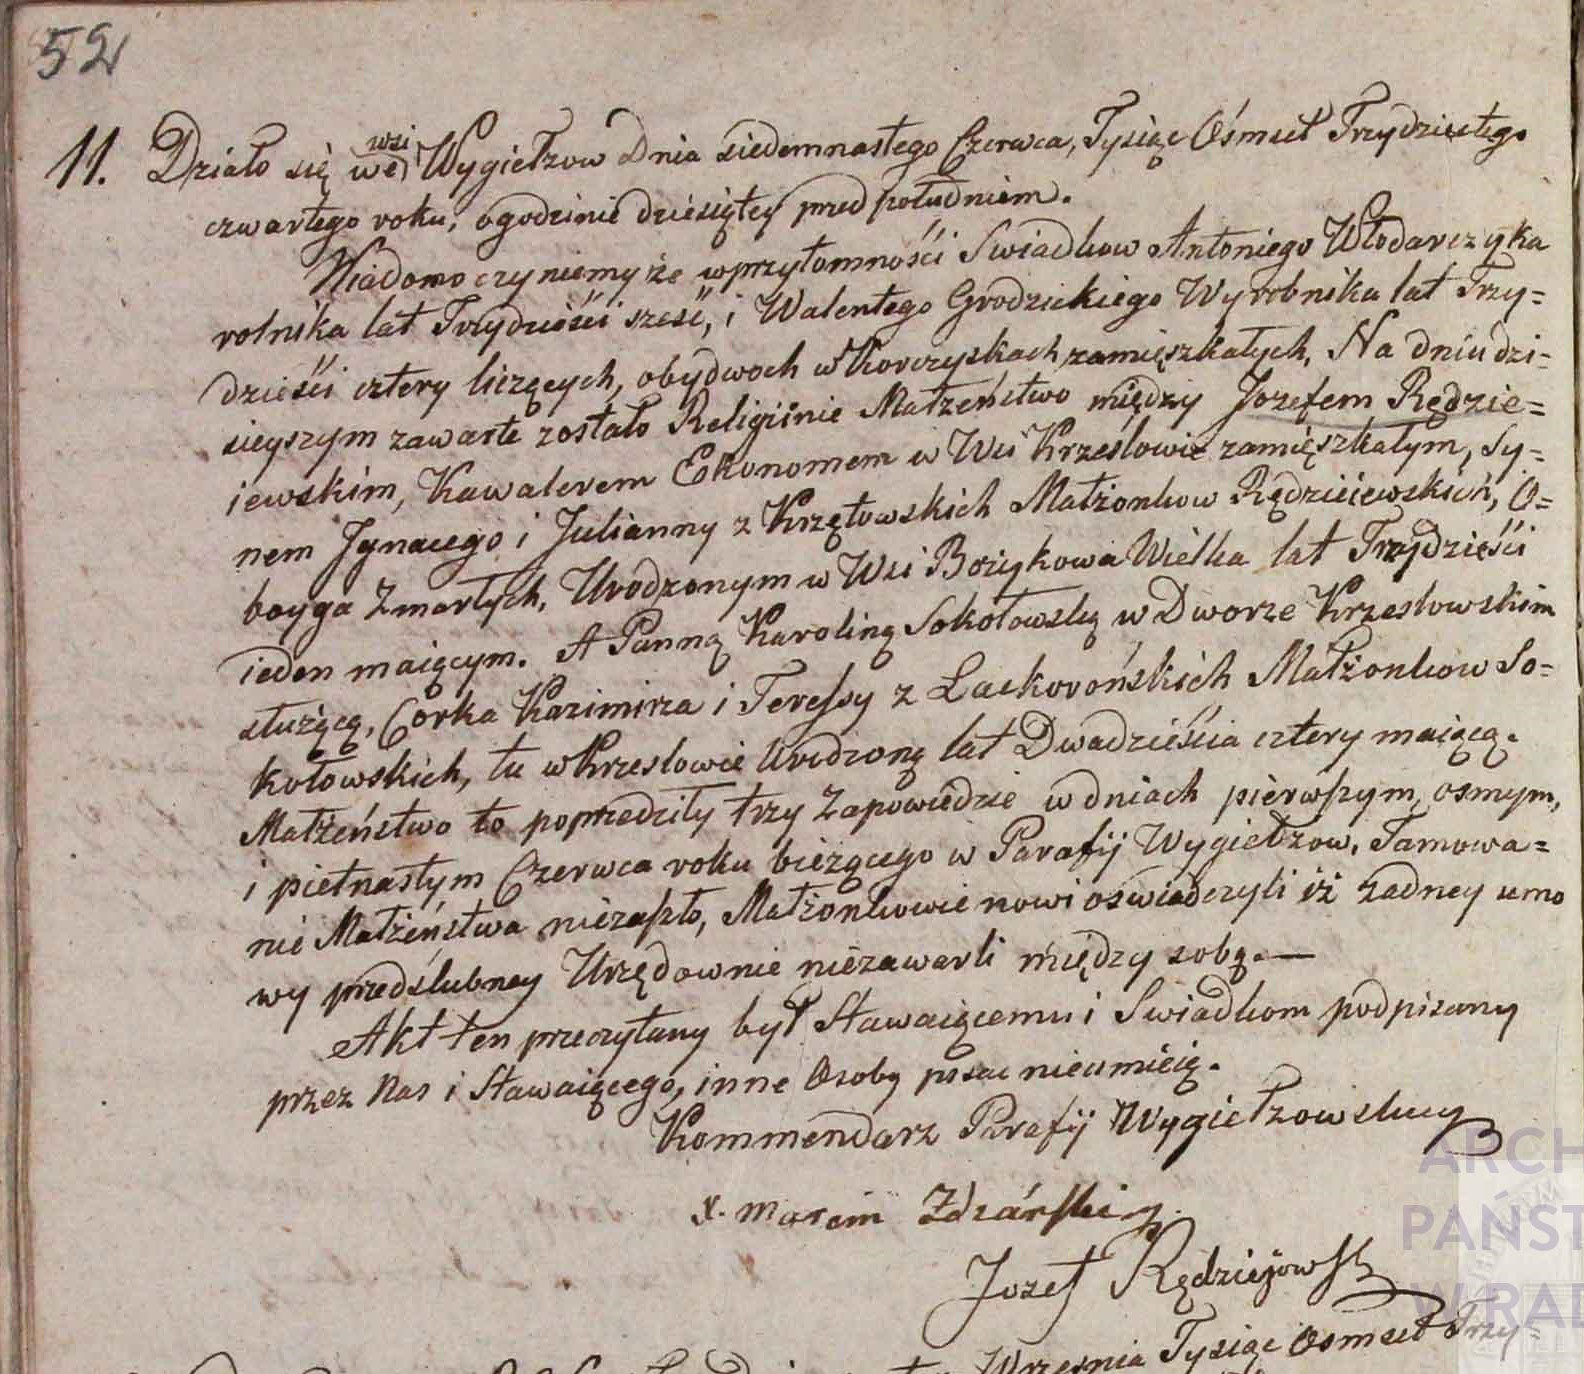 52
11. Działo się we wsi Wygiełzow dnia siedemnastego Czerwca, Tysiąc Ośmset Trzydziestego
czwartego roku, ogodzinie dziesiątey przed południem.
Wiadomo czyniemy że wprzytomności Swiadkow Antoniego Włodarczyka
rolnika lat Trzydzieści sześć, i Walentego Grodzickiego Wyrobnika lat Trzy=
dzieści cztery liczących, obydwoch w Korczyskach zamięszkałych, Na dniu dzi=
sieyszym zawarte zostało Religiinie Małżeństwo między Jozefem Rędzie=
iewskim, Kawalerem Ekonomem w Wsi Krzesłowie zamięszkałym, Sy=
nem Jgnacego i Julianny z Krzętowskich Małżonkow Rędzieiewskich, O=
boyga Zmarłych, Urodzonym w Wsi Bożykowa Wielka lat Trzydzieści
ieden maiącym. A Panną Karoliną Sokołowską w Dworze Krzesłowskim
służącą, Corka Kazimirza i Teressy z Lackorońskich Małżonkow So=
kołowskich, tu w Krzesłowie Urodzoną lat Dwadzieścia cztery maiącą.
Małżeństwo to poprzedziły trzy Zapowiedzie w dniach pierwszym, osmym,
i pietnastym Czerwca roku bieżącego w Parafij Wygiełzow, Tamowa=
nie Małżeństwa niezaszło, Małżonkowie nowi oświadczyli iż żadney umo
wy przedślubney Urzędownie niezawarli między sobą.—
Akt ten przeczytany był Stawaiącemu i Swiadkom podpisany
przez Nas i Stawaiącego, inne Osoby pisac nieumieią.
Kommendarz Parafij Wygiełzowskiey
X. Marcin Zdzárski
Jozef Rędziejowski
Wrzesnia Tysiąc Osmset Trzy=
ARCH
PAŃST
W RAD